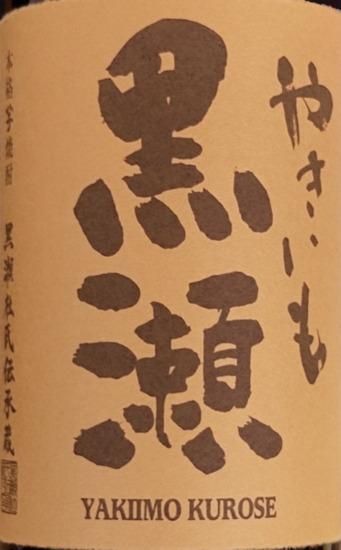 やきいも
黒瀬
本格芋焼酎 黒瀬杜氏伝承蔵
YAKIIMO KUROSE